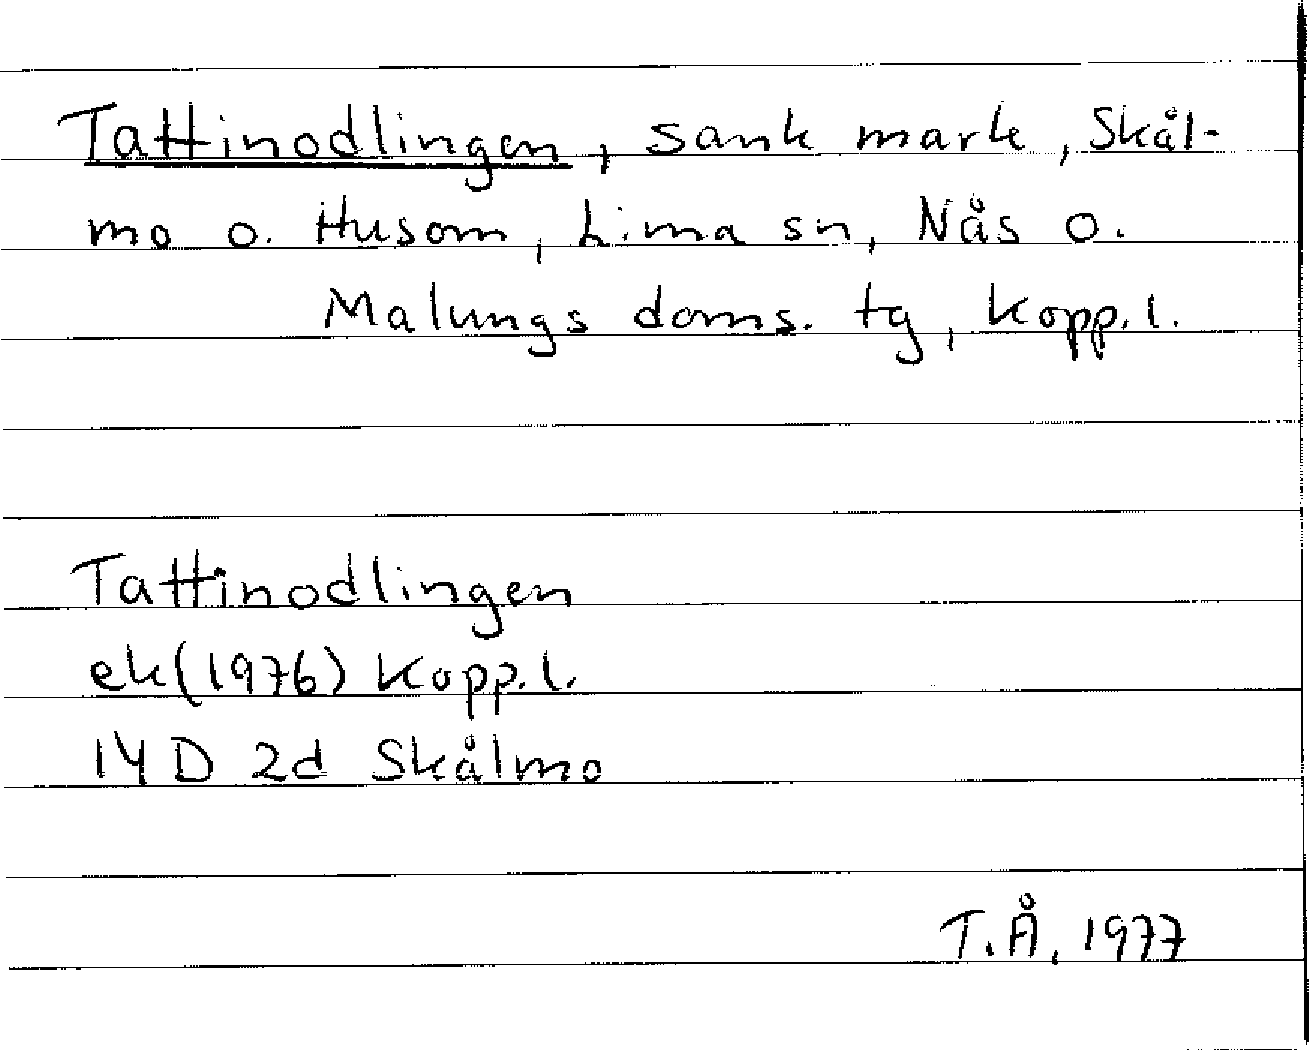 Tattinodlingen, sank mark, Skål-
mo o. Husom, Lima sn, Nås o.
Malungs doms. tg, Kopp.l.
Tattinodlingen
ek(1976) Kopp.l.
14 D 2d Skålmo
T.Å, 1977